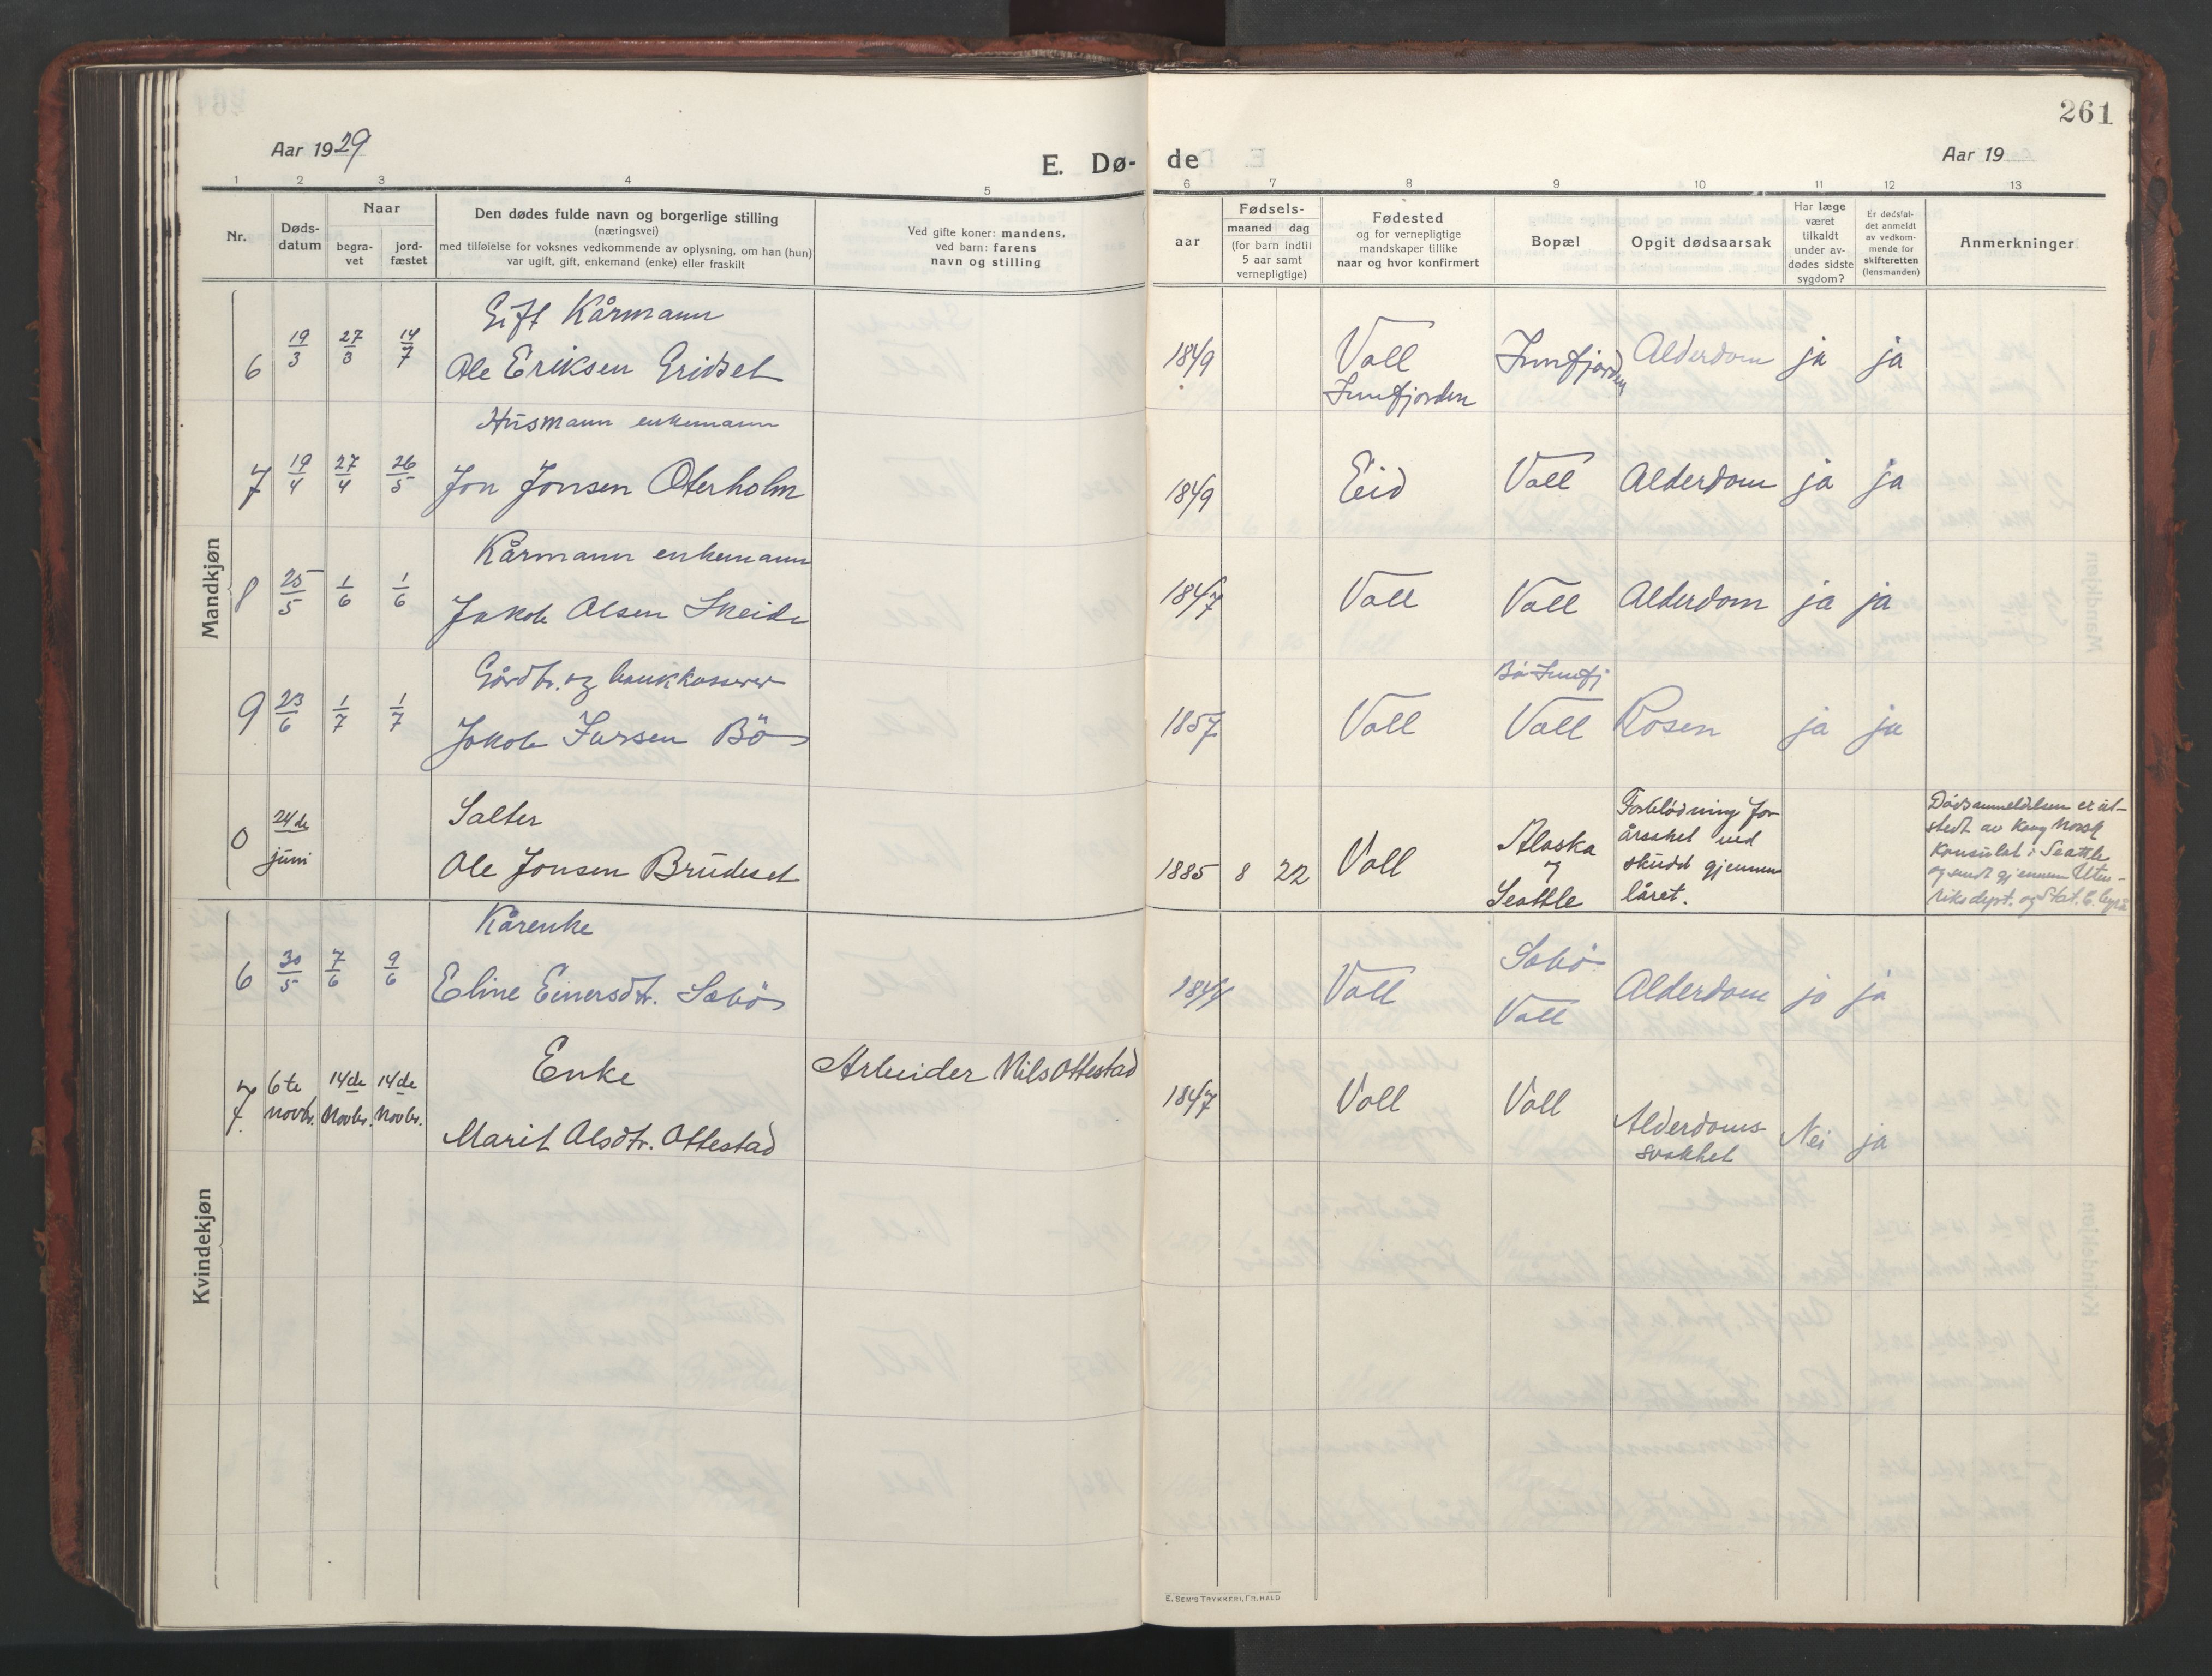 261
Aar 1929
E. Dø-
de
Aar 19
1 2 3 4 5 6 7 8 9 10 11 12 13
Nr.
Døds-
datum
Naar
begra-
vet
jord-
fæstet
Den dødes fulde navn og borgerlige stilling
(næringsvei)
med tilføielse for voksnes vedkommende av oplysning, om han (hun)
var ugift, gift, enkemand (enke) eller fraskilt
Ved gifte koner: mandens,
ved barn: farens
navn og stilling
aar
Fødsels-
maaned dag
(for barn indtil
5 aar samt
vernepligtige)
Fødested
og for vernepligtige
mandskaper tillike
naar og hvor konfirmert
Bopæl
Opgit dødsaarsak
Har læge
været
tilkaldt
under av-
dødes sidste
sygdom?
Er dødsfal-
det anmeldt
av vedkom-
mende for
skifteretten
(lensmanden)
Anmerkninger
Mandkjøn
Gift Kårmann
6 19/3 27/3 14/7 Ole Eriksen Gridset 1849 Voll Innfjorden Alderdom ja ja
Innfjorden
Husmann enkemann
7 19/4 27/4 26/5 Jon Jonsen Oterholm 1849 Eid Voll Alderdom ja ja
Kårmann enkemann
8 25/5 1/6 1/6 Jakob Olsen Skeide 1847 Voll Voll Alderdom ja ja
Gårdbr. og bankkasserer Bö Innfj
9 23/6 1/7 1/7 Jakob Larsen Bö 1857 Voll Voll Rosen ja ja
0 24de
juni
Salter
Ole Jonsen Brudeset
1885 8 22 Voll
Alaska
og
Seattle
Forblödning for
årsaket ved
skudd gjennem
låret.
Dödsanmeldelsen er ut-
stedt av Kong Norsk
Konsulat i Seattle
og sendt gjennem Uten-
riksdept. og Stat. C. byrå
Kvindekjøn
Kårenke
6 30/5 7/6 9/6 Eline Einersdtr. Sæbö Voll Sæbö Alderdom ja ja
Voll
7 6te
novbr. 14de
Novbr. 14de
Novbr.
Enke Arbeider Nils Ottestad
Marit Olsdtr. Ottestad
1847 Voll Voll
Alderdoms-
svakhet
Nei ja
E. SEM'S TRYKKERI, FR. HALD